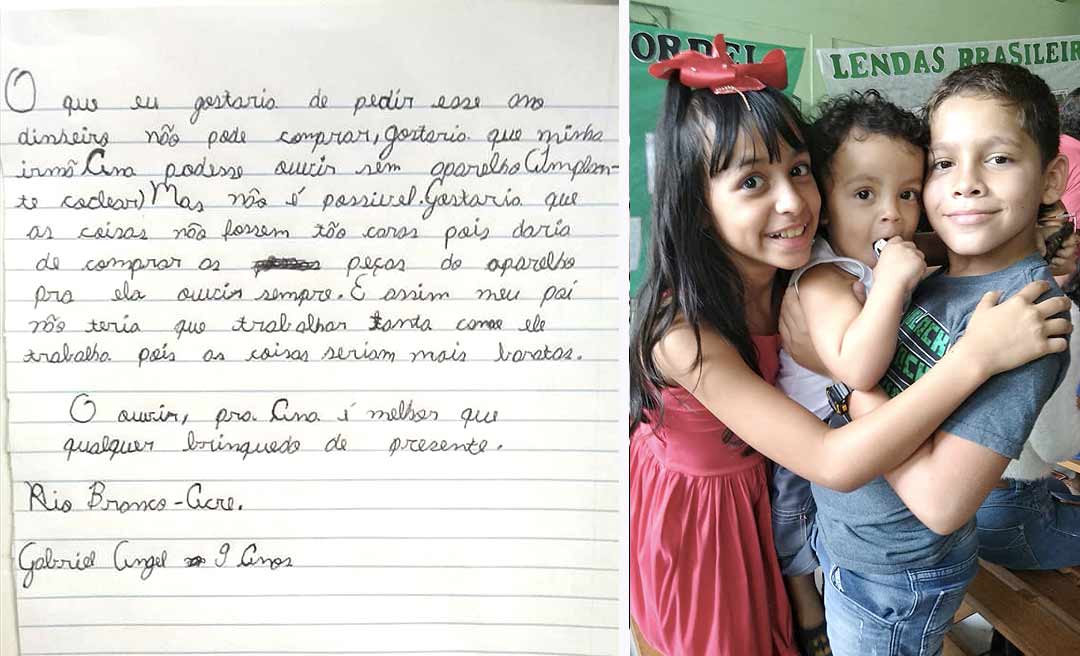 O que eu gostaria de pedir esse ano
dinheiro não pode comprar, gostaria que minha
irmã Ana podesse ouvir sem aparelho (implan-
te coclear) Mas não é possivel. Gostaria que
as coisas não fossem tão caras pois daria
de comprar as peças do aparelho
pra ela ouvir sempre. E assim meu pai
não teria que trabalhar tanto como ele
trabalha pois as coisas seriam mais baratas.
O ouvir, pra Ana é melhor que
qualquer brinquedo de presente.
Rio Branco - Acre.
Gabriel Angel 9 Anos
ORDEL
LENDAS BRASILEIR
BLACK
BLACK